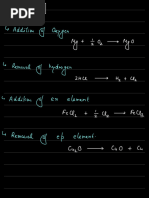 ↳ Addition of Oxygen
Mg + 1/2 O₂ ⟶ MgO
↳ Removal of hydrogen
2HCl ⟶ H₂ + Cl₂
↳ Addition of en element
FeCl₂ + 1/2 Cl₂ ⟶ FeCl₃
↳ Removal of e/p element.
Cu₂O ⟶ CuO + Cu